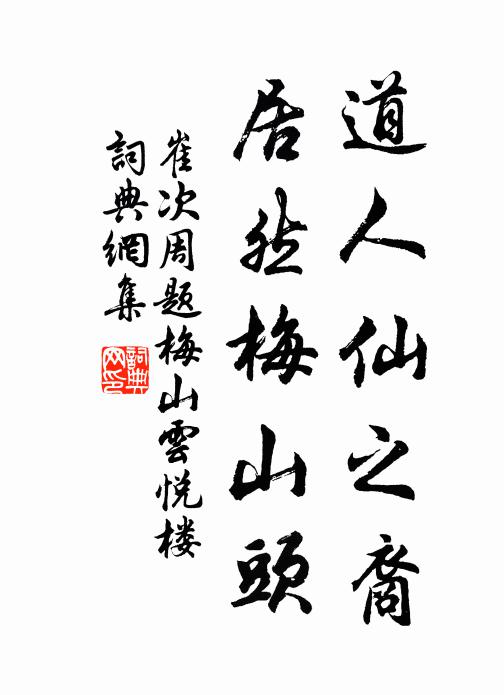 道人仙之裔
居然梅山頭
崔次周题梅山雲悦楼
詞典網集
詞典网印